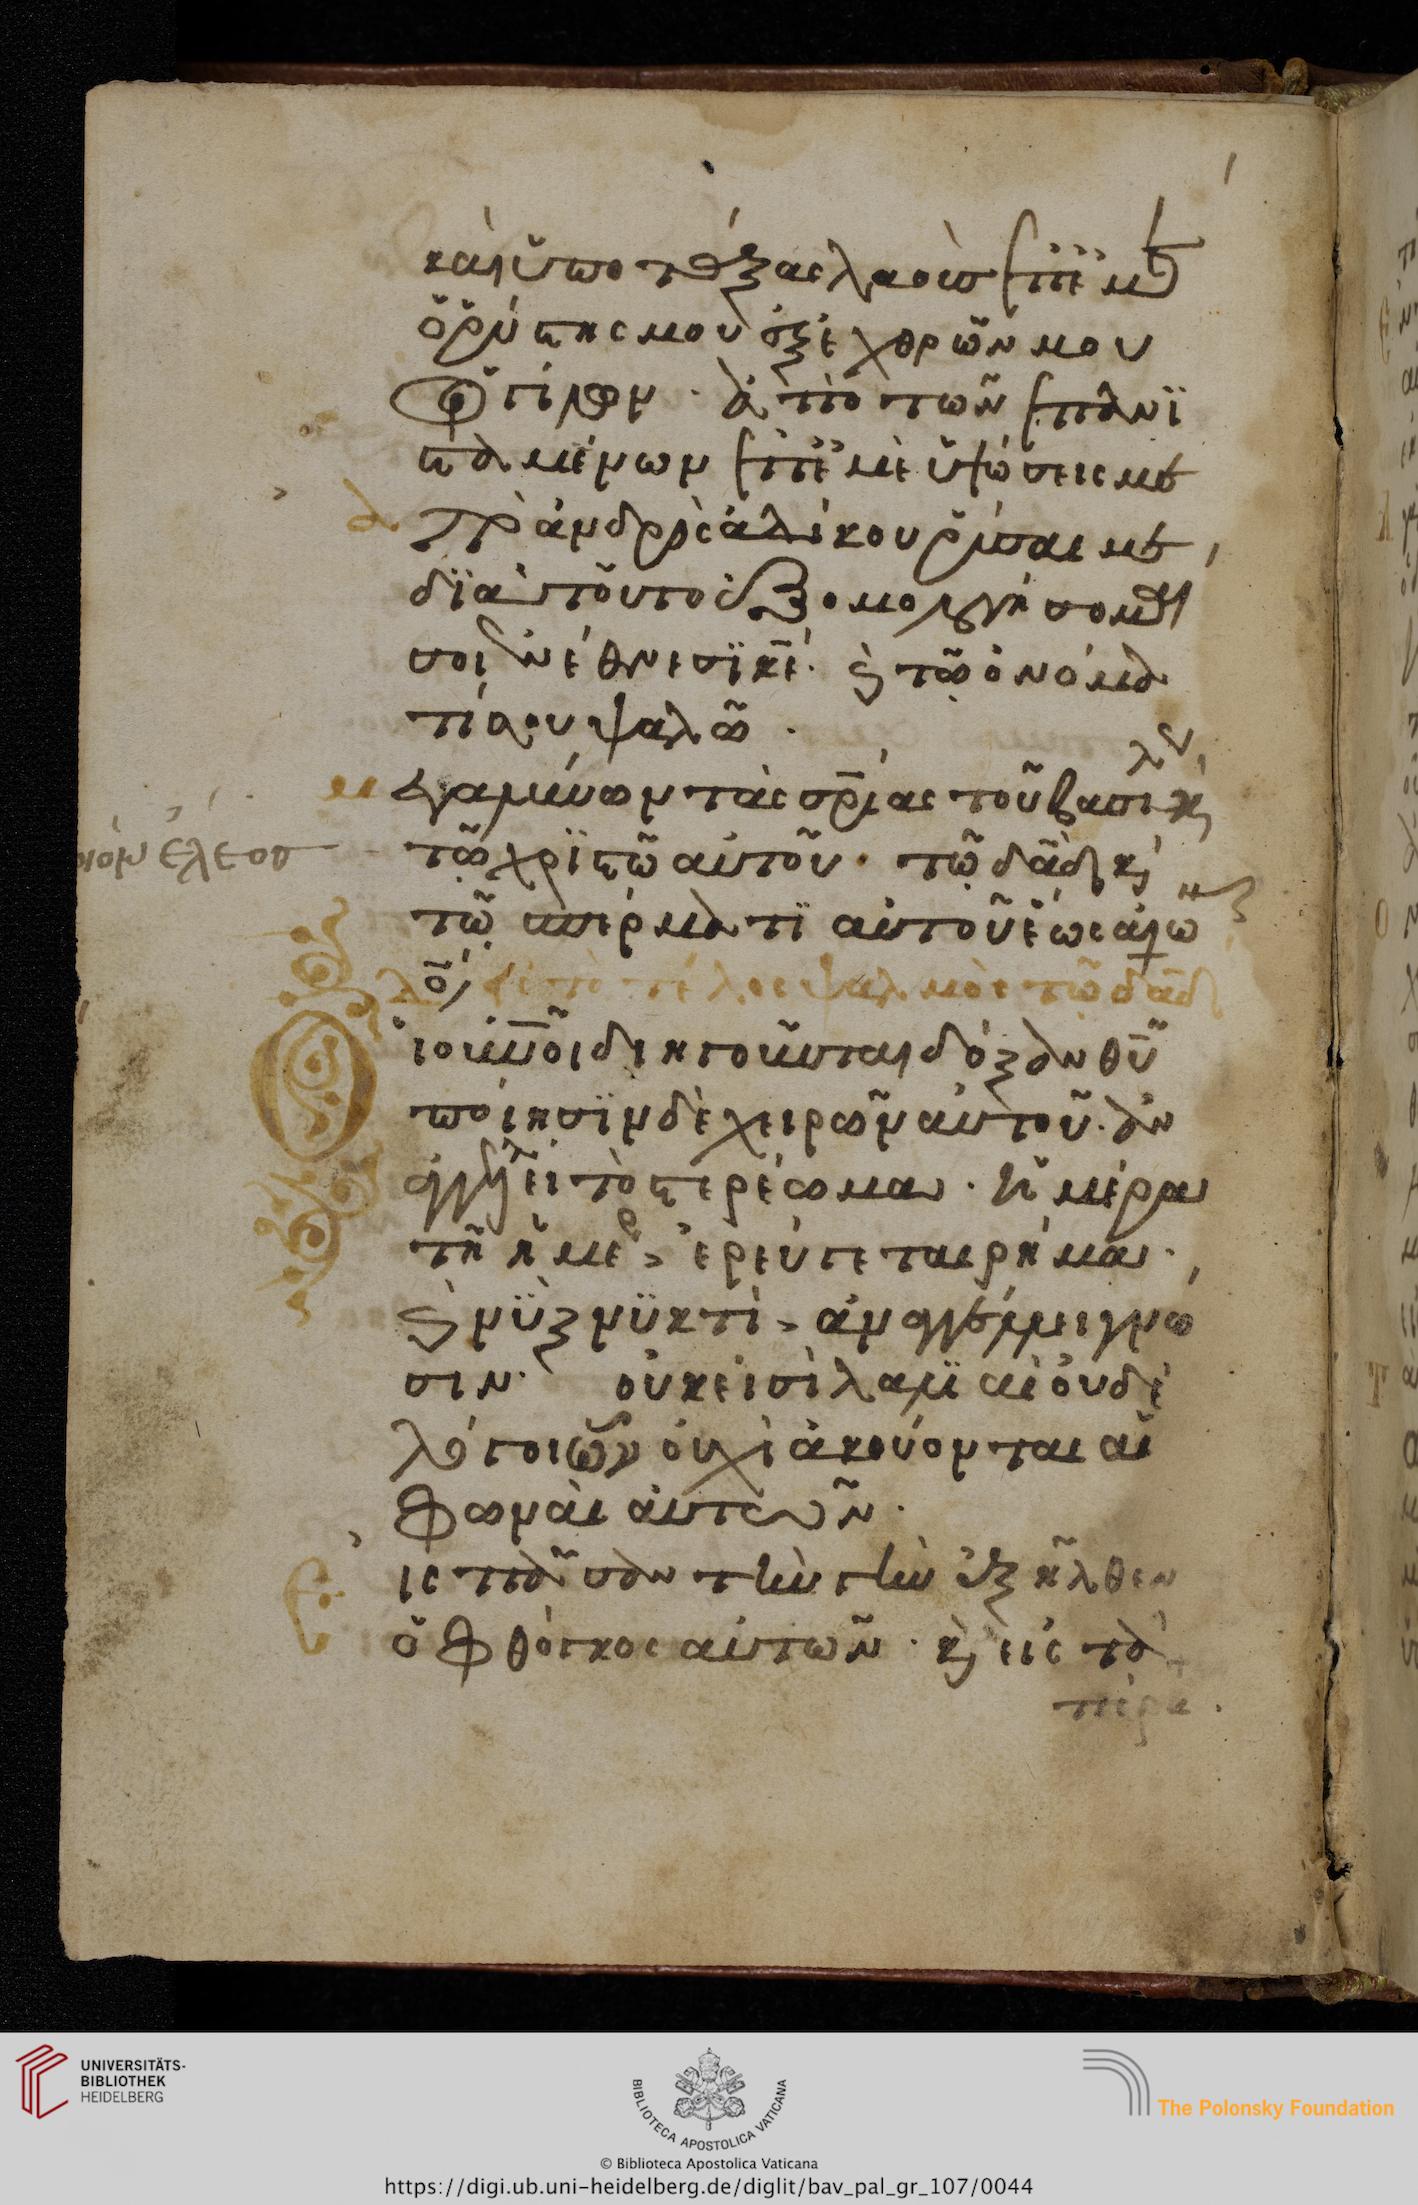 καὶ ὑποτάξας λαοὺς ἐπ' ἐμέ
ὁ ῥύστης μου ἐξ ἐχθρῶν μου
ὀργίλων. ἀπὸ τῶν ἐπανϊ
σταμένων ἐπ' ἐμὲ ὑψώσεις με
ἀπὸ ἀνδρὸς ἀδίκου ῥύσαι με
δϊὰ τοῦτο ἐξομολογήσομαί
σοι ἐν ἔθνεσϊ κε. καὶ τῷ ὀνόμα
τί σου ψαλῶ.
μεγαλύνων τὰς σρίας τοῦ βασιλέως καὶ
ποιῶν ἔλεος τῷ χρϊστῷ αὐτοῦ. τῷ δᾱδ καὶ
τῷ σπέρματϊ αὐτοῦ ἕως αἰῶ
νος
εἰς τὸ τέλος ψαλμὸς τῷ δᾱδ
Οἱ οὐνοὶ διηγοῦνται δόξαν θυ
ποίησϊν δὲ χειρῶν αὐτοῦ. ἀν
αγγέλλει τὸ στερέωμα. ἡμέρα
τῇ ἡμέρᾳ ἐρεύγεται ρῆμα.
καὶ νὺξ νϋκτὶ ἀναγγέλλει γνῶ
σιν. οὐκ εἰσὶ λαλϊαὶ οὐδὲ
λόγοι ὧν οὐχὶ ἀκούονται αἱ
φωναὶ αὐτῶν.
Εἰς πᾶσαν τὴν γὴν ἐξῆλθεν
ὁ φθόγγος αὐτῶν. καὶ εἰς τὰ
πέρα.
UNIVERSITÄTS-
BIBLIOTHEK
HEIDELBERG
BIBLIOTECA APOSTOLICA VATICANA
The Polonsky Foundation
© Biblioteca Apostolica Vaticana
https://digi.ub.uni-heidelberg.de/diglit/bav_pal_gr_107/0044